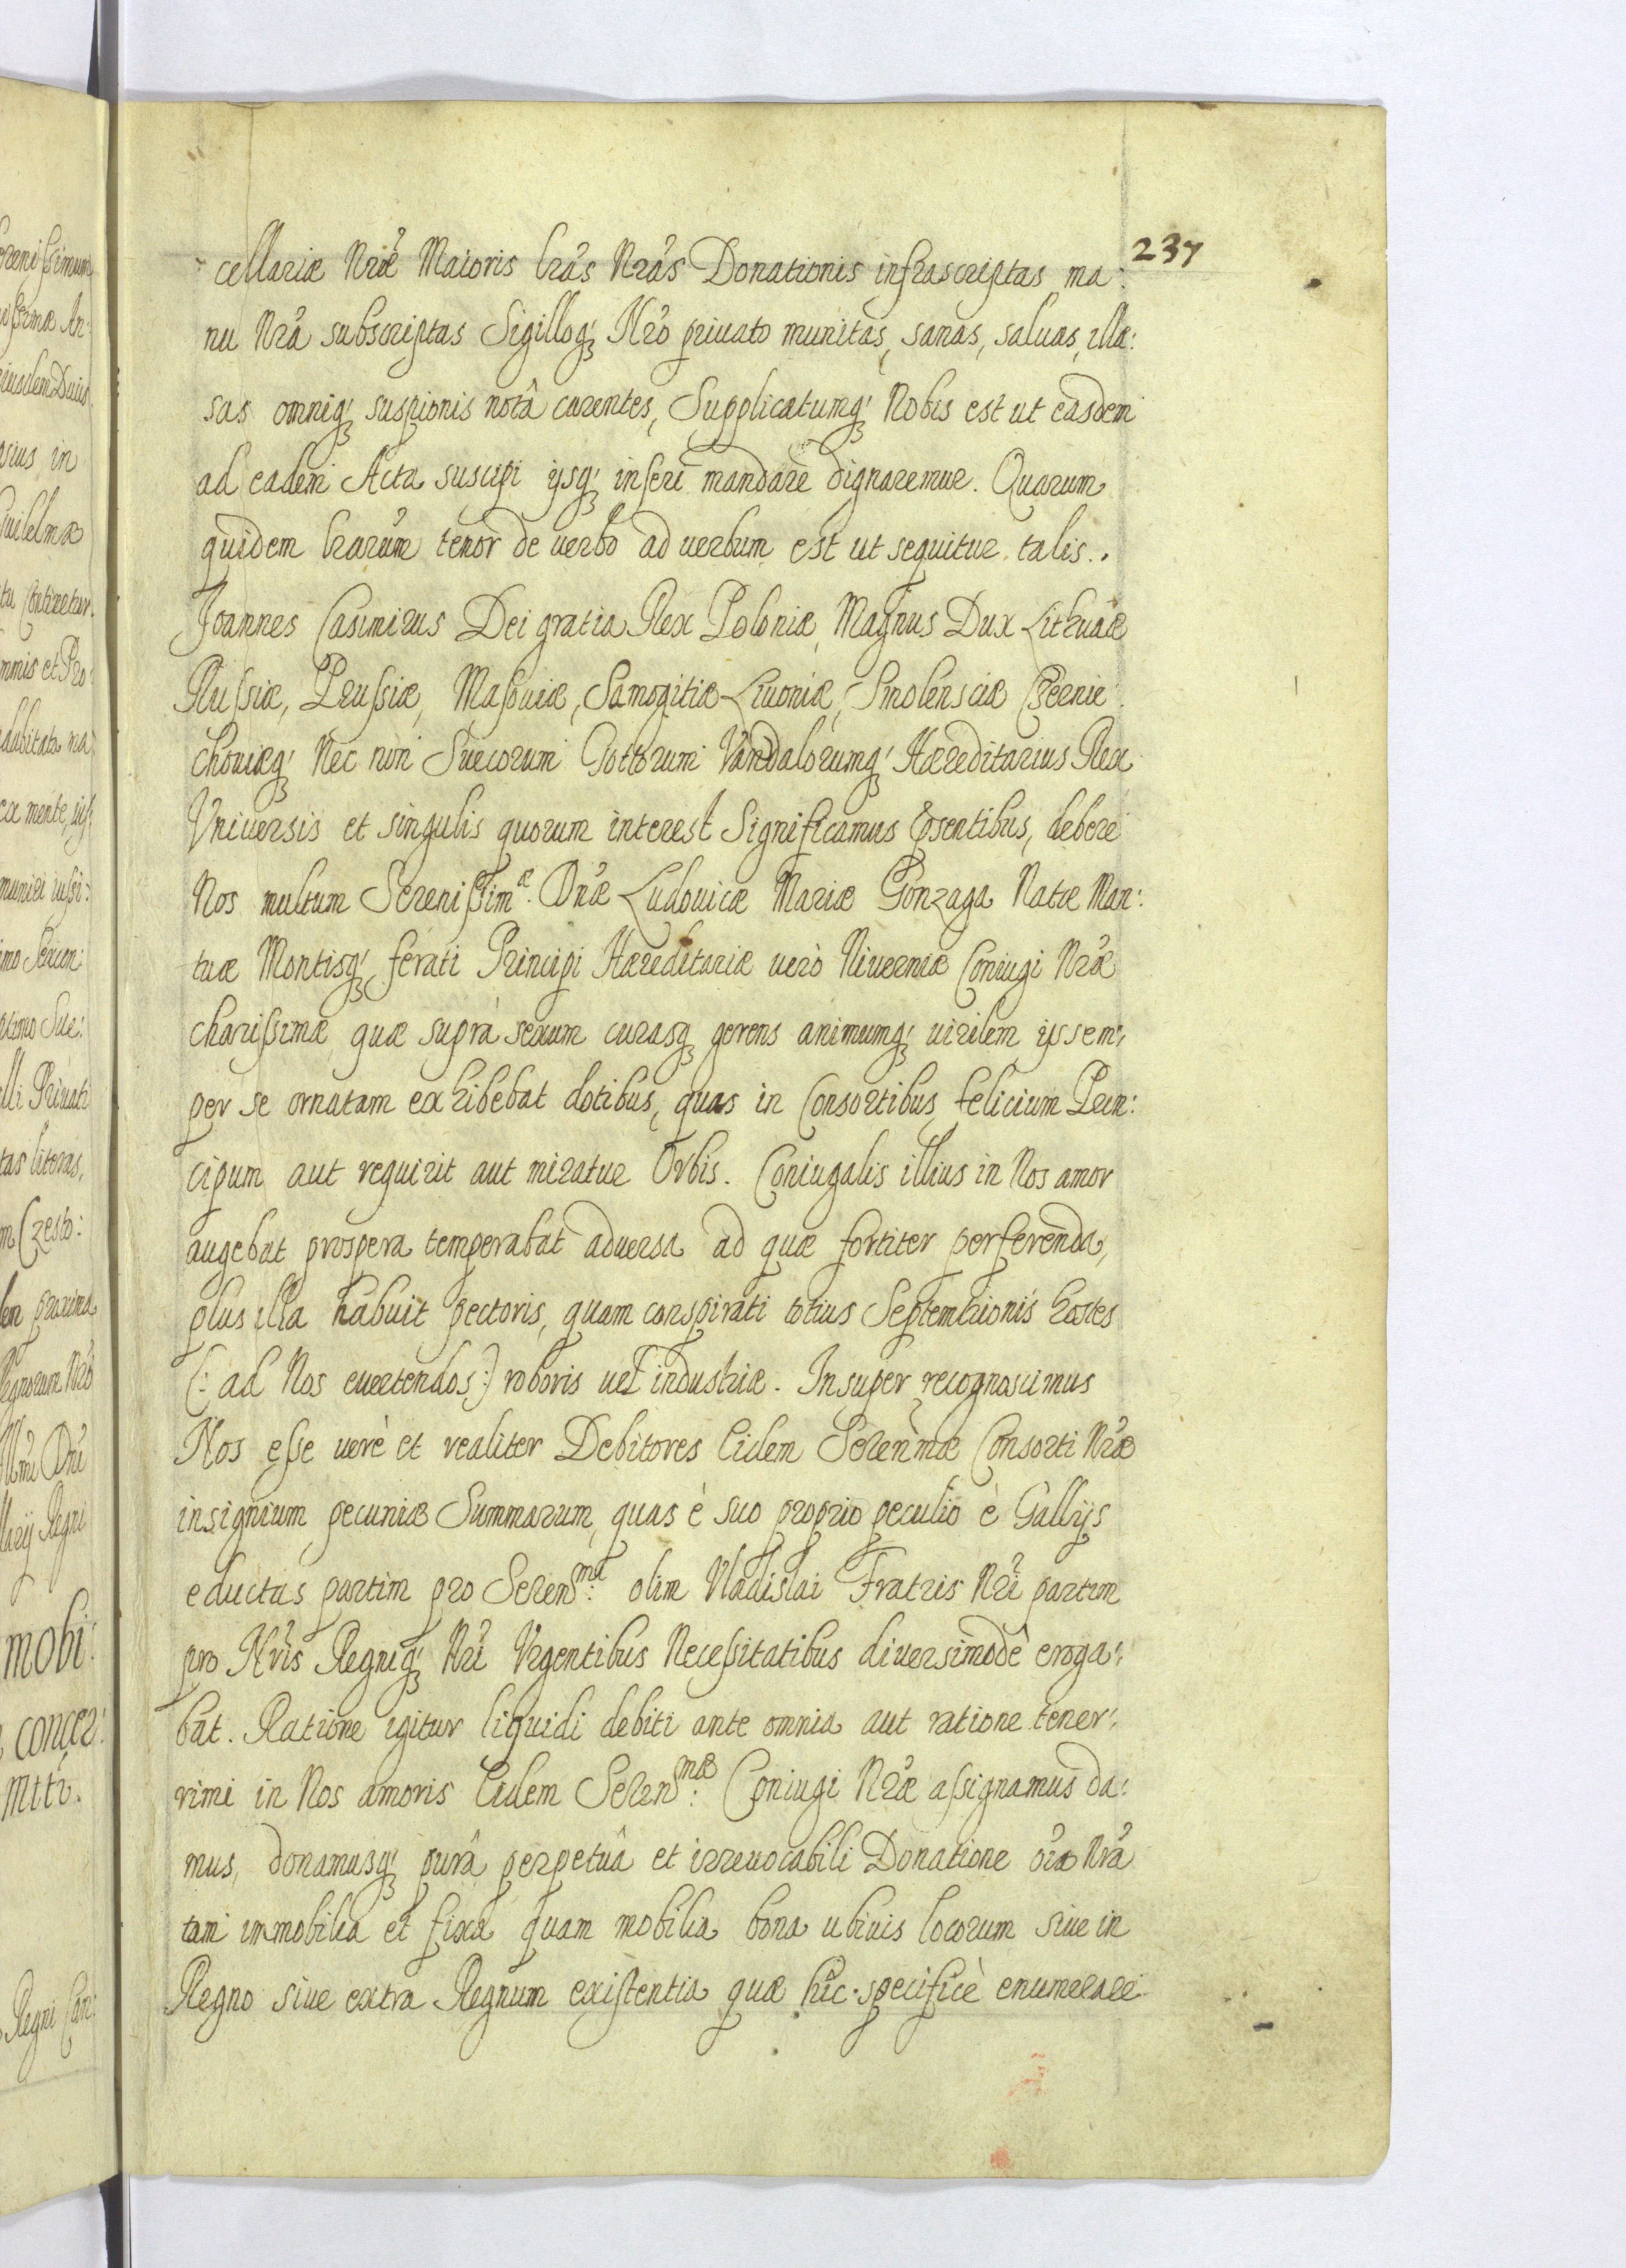 237
cellariæ Nræ Maioris lras Nras Donationis infrascriptas ma:
nu Nra subscriptas Sigilloq; Nro priuato munitas, sanas, saluas, illæ:
sas omniq; suspionis notâ carentes, Supplicatumq; Nobis est ut easdem
ad eadem Acta suscipi ijsq; inseri mandare dignaremur. Quarum
quidem lrarum tenor de uerbo ad uerbum est ut sequitur talis..
Joannes Casimirus Dei gratia Rex Poloniæ, Magnus Dux Lithuaæ
Russiæ, Prussiæ, Masouiæ, Samogitiæ Liuoniæ, Smolensciæ Czernie:
chouiæq; Nec non Suecorum Gottorum Vandalorumq; Hæreditarius Rex
Vniuersis et singulis quorum interest Significamus psentibus, debere
Nos multum Serenissim:æ Dnæ Ludouicæ Mariæ Gonzaga Natæ Man:
tuæ Montisq; ferati Principi Hæreditariæ uerò Niuerniæ Coniugi Nræ
charissimæ, quæ suprà sexum curasq; gerens animumq; uirilem ijs sem:
per se ornatam exhibebat dotibus, quas in Consortibus felicium Prin:
cipum aut requirit aut miratur Orbis. Coniugalis illius in Nos amor
augebat prospera temperabat aduersa ad quæ fortiter perferenda,
plus illa habuit pectoris, quam conspirati totius Septemtrionis hostes
(: ad Nos euertendos :) roboris uel industriæ. Insuper recognoscimus
Nos esse uerè et realiter Debitores Eidem Serenmæ Consorti Nræ
insignium pecuniæ Summarum, quas è suo proprio peculio è Gallijs
eductas partim pro Seren:mi olim Vladislai Fratris Nri partim
pro Nris Regniq; Nri Vrgentibus Necessitatibus diuersimodê eroga:
bat. Ratione igitur liquidi debiti ante omnia aut ratione tener:
rimi in Nos amoris Eidem Seren:mæ Coniugi Nræ assignamus da:
mus, donamusq; purâ perpetuâ et irreuocabili Donatione oia Nra
tam immobilia et fixa quam mobilia bona ubiuis locorum siue in
Regno siue extra Regnum existentia quæ hic specificè enumerare